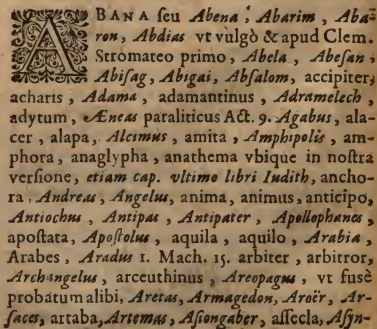 ABANA seu Abena, Abarim, Aba-
ron, Abdias vt vulgò & apud Clem.
Stromateo primo, Abela, Abesan,
Abisag, Abigai, Absalom, accipiter,
acharis, Adama, adamantinus, Adramelech,
adytum, Æneas paraliticus Act. 9. Agabus, ala-
cer, alapa, Alcimus, amita, Amphipolis, am-
phora, anaglypha, anathema vbique in nostra
versione, etiam cap. vltimo libri Iudith, ancho-
ra, Andreas, Angelus, anima, animus, anticipo,
Antiochus, Antipas, Antipater, Apollophanes,
apostata, Apostolus, aquila, aquilo, Arabia,
Arabes, Aradus 1. Mach. 15. arbiter, arbitror,
Archangelus, arceuthinus, Areopagus, vt fusè
probatum alibi, Aretas, Armagedon, Aroër, Ar-
saces, artaba, Artemas, Asiongaber, assecla, Asyn-